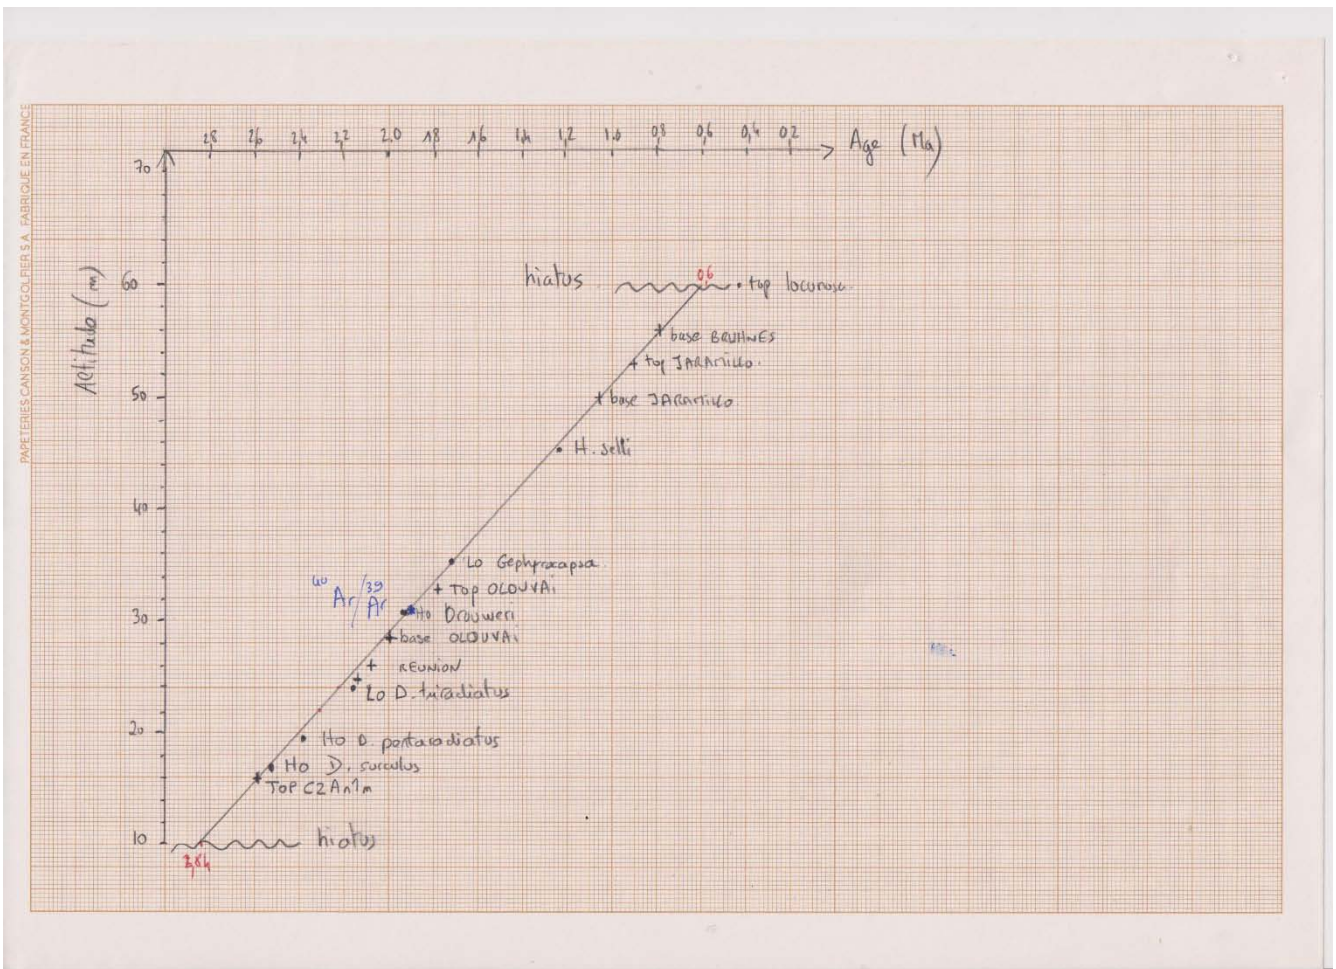 PAPETERIES CANSON & MONTGOLFIER S.A. FABRIQUE EN FRANCE
2,8 2,6 2,4 2,2 2,0 1,8 1,6 1,4 1,2 1,0 0,8 0,6 0,4 0,2 Age (Ma)
70
Altitude (m)
60
hiatus
0,6
top lacunosa
base BRUHNES
top JARAMILLO
50
base JARAMILLO
H. selli
40
Lo Gephyrocapsa
Top OLDUVAi
40 Ar/39 Ar
30
Ho Brouweri
base OLDUVAi
REUNION
Lo D. triradiatus
20
Ho D. pentaradiatus
Ho D. surculus
TOP C2An1n
10
hiatus
2,84